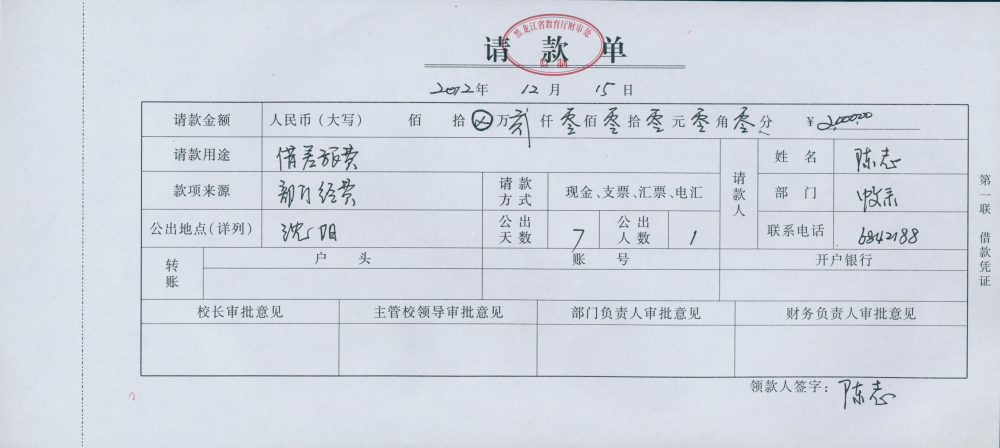 黑龙江省教育厅财审处
监制
请款单
2012年 12月 15日
请款金额 人民币（大写） 佰 拾 ⊗万 贰仟 零佰 零拾 零元 零角 零分 ￥2000.00
请款用途 借差旅费 请款人 姓名 陈志
款项来源 部门经费 请款方式 现金、支票、汇票、电汇 部门
公出地点（详列） 沈阳 公出天数 7 公出人数 1 联系电话 6842188
转账 户头 账号 开户银行
校长审批意见 主管校领导审批意见 部门负责人审批意见 财务负责人审批意见
领款人签字：陈志
第一联 借款凭证